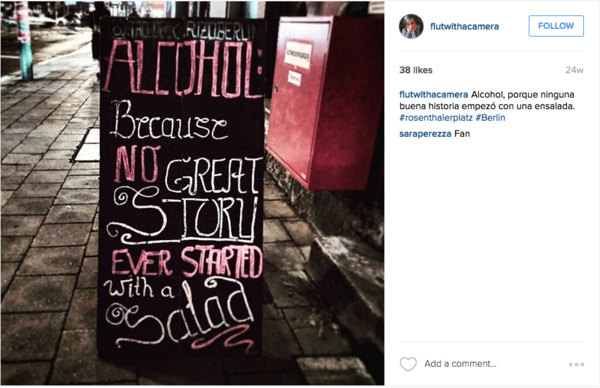 ALCOHOL:
Because
NO GREAT
STORY
EVER STARTED
with a
Salad
flutwithacamera
FOLLOW
38 likes
24w
flutwithacamera Alcohol, porque ninguna
buena historia empezó con una ensalada.
#rosenthalerplatz #Berlin
saraperezza Fan
Add a comment...